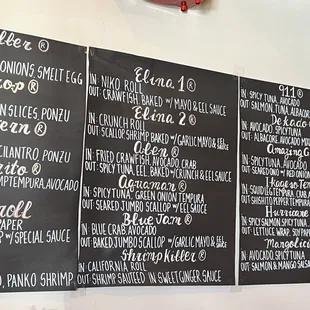 ller ®
ONIONS SMELT EGG
op ®
N SLICES, PONZU
ern ®
CILANTRO, PONZU
ito ®
MPTEMPURA, AVOCADO
roll
PAPER
W/SPECIAL SAUCE
D, PANKO SHRIMP,
Elina 1 ®
IN: NIKO ROLL
OUT: CRAWFISH, BAKED W/MAYO & EEL SAUCE
Elina 2 ®
IN: CRUNCH ROLL
OUT: SCALLOP SHRIMP BAKED W/GARLIC MAYO &
®
IN: FRIED CRAWFISH, AVOCADO, CRAB
OUT: SPICY TUNA, EEL BAKED W/CRUNCH & EEL SAUCE
Aquaman ®
IN: SPICY TUNA, GREEN ONION TEMPURA
OUT: SEARED JUMBO SCALLOP W/EEL SAUCE
Blue Jam ®
IN: BLUE CRAB, AVOCADO
OUT: BAKED JUMBO SCALLOP W/GARLIC MAYO &
Shrimp Killer ®
IN: CALIFORNIA ROLL
OUT: SHRIMP SAUTEED IN SWEET GINGER SAUCE
911 ®
IN: SPICY TUNA, AVOCADO
OUT: SALMON, TUNA, ALBACORE
Dekaco
IN: AVOCADO, SPICY TUNA
OUT: ALBACORE, AVOCADO
Amazing
IN: SPICY TUNA, AVOCADO
OUT: SEARED ONO W/ RED ONION
IN: SQUID, EEL, SHRIMP, CRAB
OUT: SHISHITO PEPPER TEMPURA
Hurricane
IN: SPICY SALMON, SPICY TUNA
OUT: LETTUCE WRAP, SOY PAPER
Mangolicio
IN: AVOCADO, SPICY TUNA
OUT: SALMON & MANGO SALSA